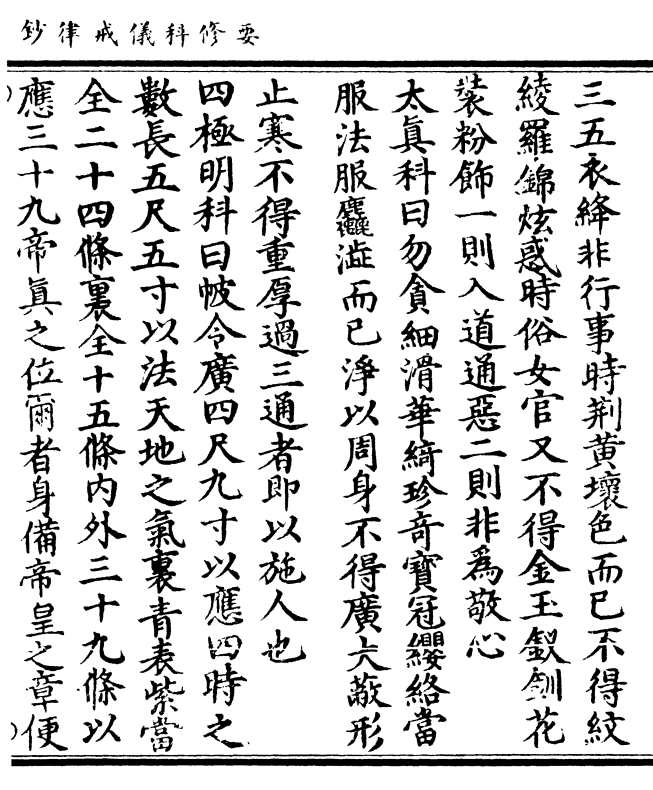 要修科儀戒律鈔
三五衣絳非行事時荆黄壞色而已不得紋
綾羅錦炫惑時俗女官又不得金玉釵釧花
裝粉飾一則入道通惡二則非爲敬心
太真科曰勿貪細滑華綺珍奇寶冠纓絡當
服法服麤澁而已淨以周身不得廣大蔽形
止寒不得重厚過三通者即以施人也
四極明科曰帔令廣四尺九寸以應四時之
數長五尺五寸以法天地之氣裏青表紫當
全二十四條裏全十五條内外三十九條以
應三十九帝真之位爾者身備帝皇之章便